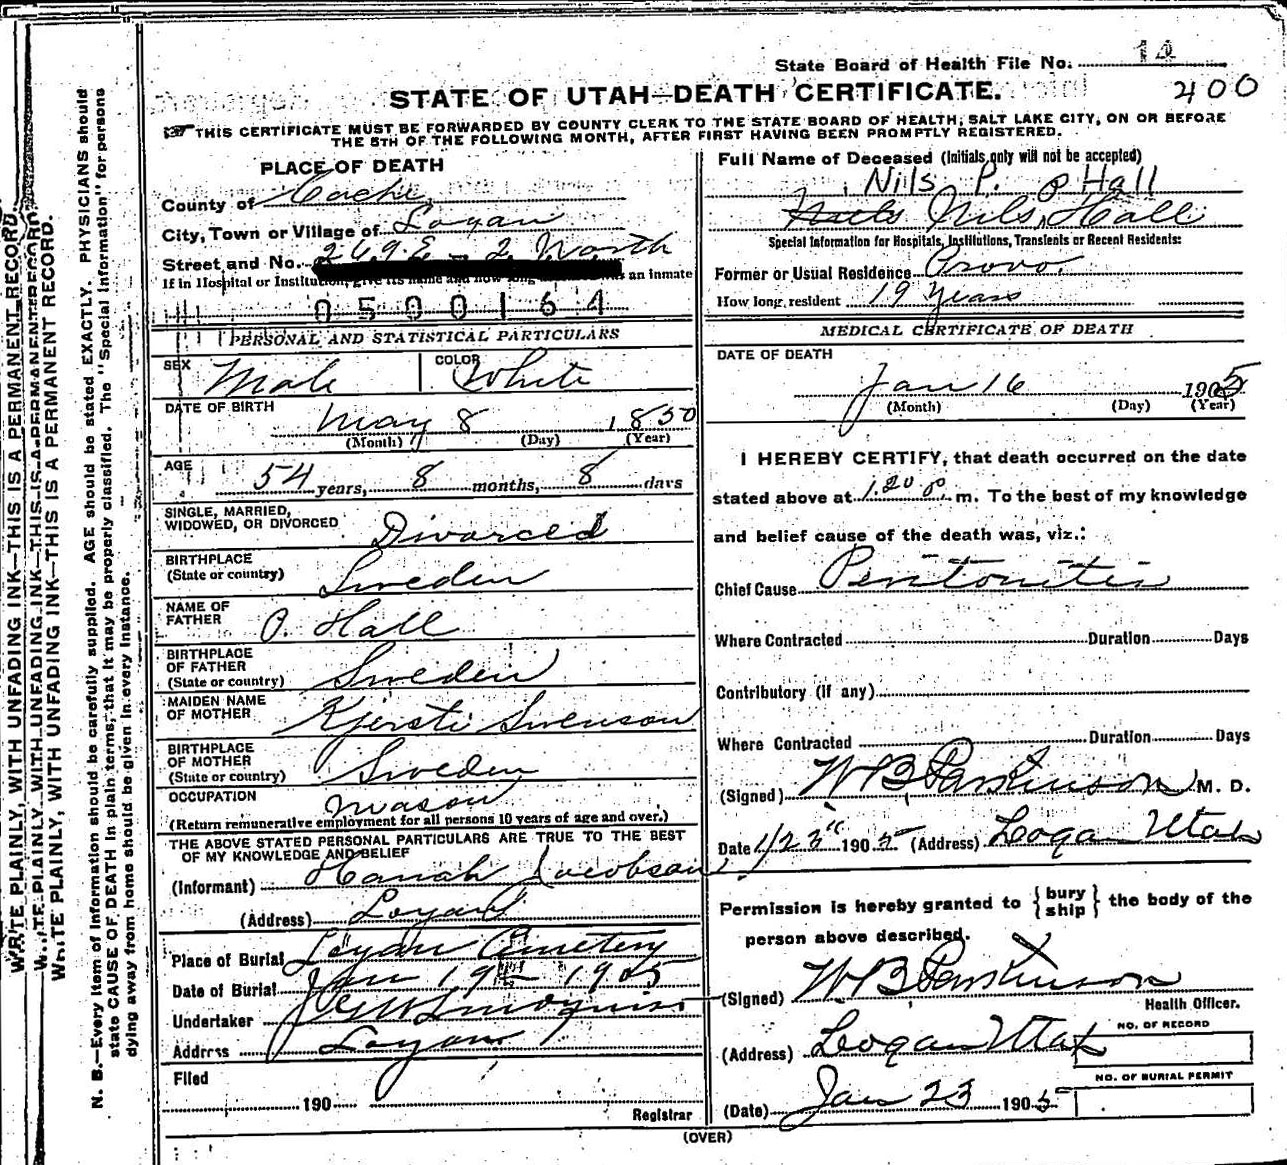 State Board of Health File No. 14
STATE OF UTAH—DEATH CERTIFICATE.
400
THIS CERTIFICATE MUST BE FORWARDED BY COUNTY CLERK TO THE STATE BOARD OF HEALTH, SALT LAKE CITY, ON OR BEFORE
THE 5TH OF THE FOLLOWING MONTH, AFTER FIRST HAVING BEEN PROMPTLY REGISTERED.
PLACE OF DEATH
County of Cache
City, Town or Village of Logan
Street and No. 269 E - 2 North
If in Hospital or Institution, give its name and how long an inmate
0500164
PERSONAL AND STATISTICAL PARTICULARS
SEX Male COLOR White
DATE OF BIRTH
May 8 1850
(Month) (Day) (Year)
AGE
54 years, 8 months, 8 days
SINGLE, MARRIED,
WIDOWED, OR DIVORCED Divorced
BIRTHPLACE
(State or country) Sweden
NAME OF
FATHER P. Hall
BIRTHPLACE
OF FATHER
(State or country) Sweden
MAIDEN NAME
OF MOTHER Kjersti Swenson
BIRTHPLACE
OF MOTHER
(State or country) Sweden
OCCUPATION Mason
(Return remunerative employment for all persons 10 years of age and over.)
THE ABOVE STATED PERSONAL PARTICULARS ARE TRUE TO THE BEST
OF MY KNOWLEDGE AND BELIEF
(Informant) Hanah Jacobson
(Address) Logan
Place of Burial Logan Cemetery
Date of Burial Jan 19th 1905
Undertaker
Address Logan
Filed
190
Registrar
Full Name of Deceased (Initials only will not be accepted)
Nils P. Hall
Nils Nils Hall
Special Information for Hospitals, Institutions, Transients or Recent Residents:
Former or Usual Residence Provo.
How long resident 19 Years
MEDICAL CERTIFICATE OF DEATH
DATE OF DEATH
Jan 16 1905
(Month) (Day) (Year)
I HEREBY CERTIFY, that death occurred on the date
stated above at 1.20 p. m. To the best of my knowledge
and belief cause of the death was, viz.:
Chief Cause Peritonitis
Where Contracted Duration Days
Contributory (if any)
Where Contracted Duration Days
(Signed) W B Parkinson M. D.
Date 1/23" 1905 (Address) Logan Utah
Permission is hereby granted to { bury ship } the body of the
person above described.
(Signed) W B Parkinson
Health Officer.
NO. OF RECORD
(Address) Logan Utah
NO. OF BURIAL PERMIT
(Date) Jan 23 1905
(OVER)
WRITE PLAINLY, WITH UNFADING INK—THIS IS A PERMANENT RECORD
WRITE PLAINLY, WITH UNFADING INK—THIS IS A PERMANENT RECORD
WRITE PLAINLY, WITH UNFADING INK—THIS IS A PERMANENT RECORD.
N. B.—Every item of information should be carefully supplied. AGE should be stated EXACTLY. PHYSICIANS should
state CAUSE OF DEATH in plain terms, that it may be properly classified. The "Special Information" for persons
dying away from home should be given in every instance.